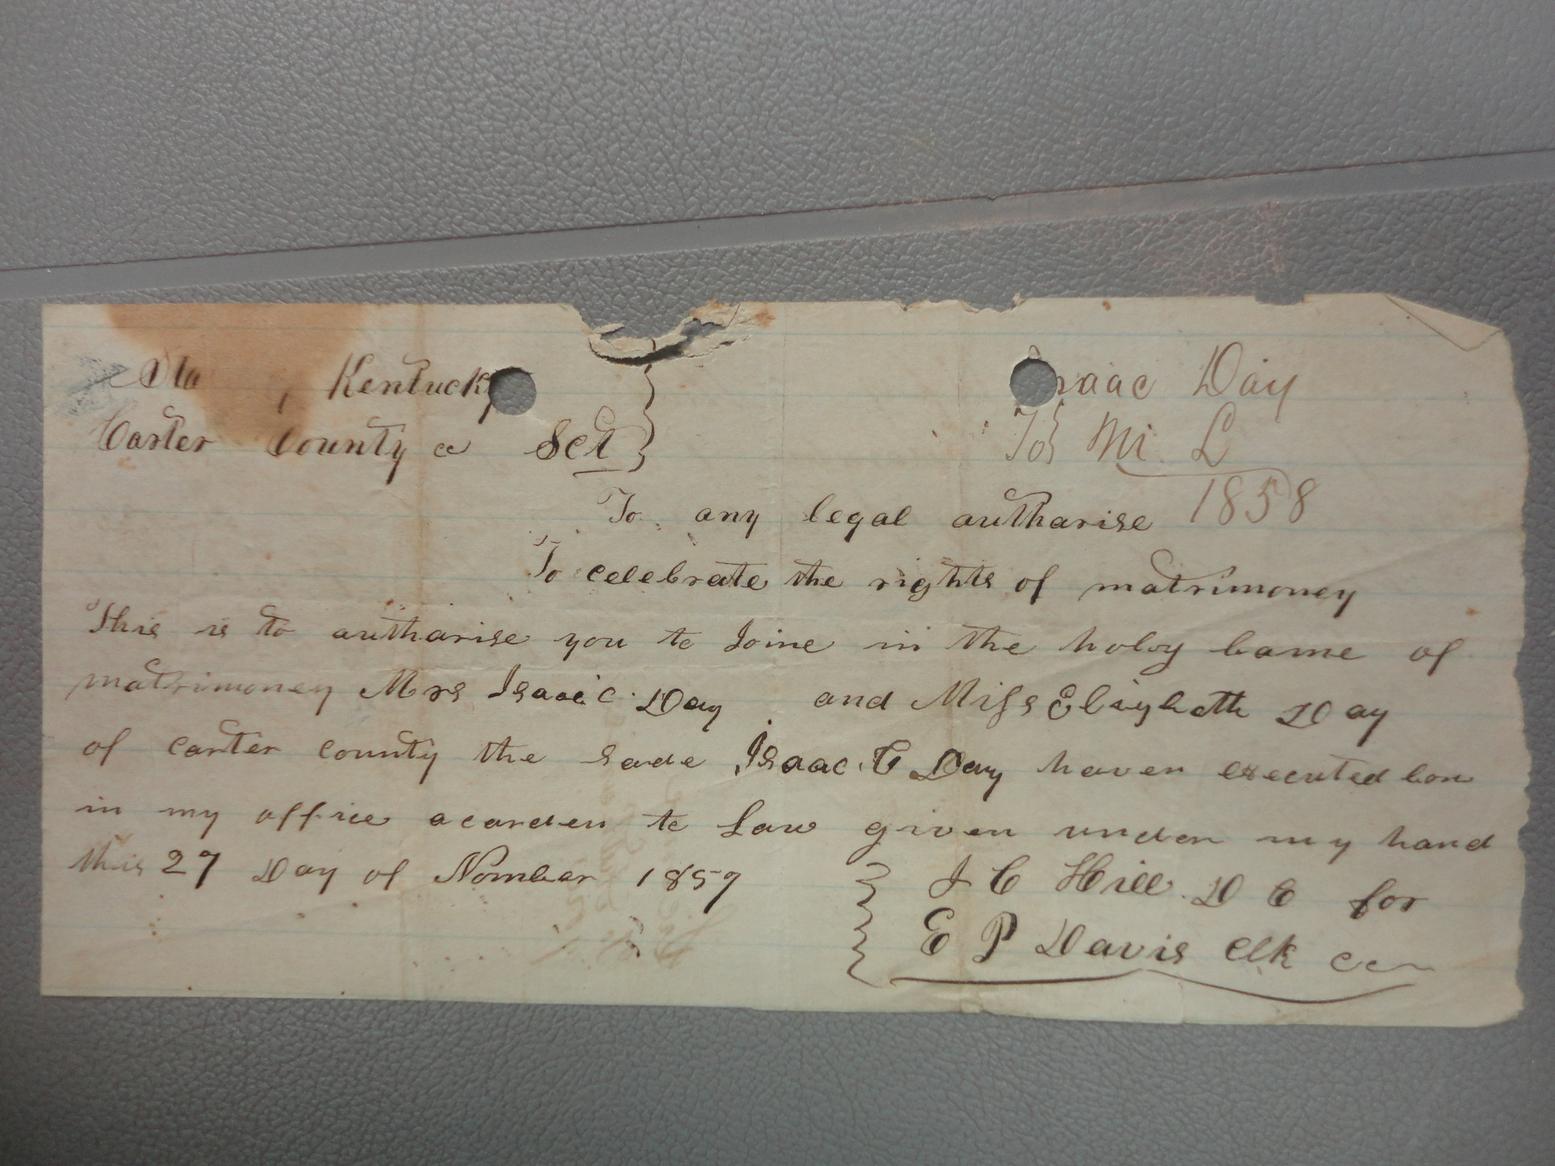 Sta , Kentucky
Carter County Sct
Isaac Day
To Mi. L
1858
To any legal autharise
To celebrate the rights of matrimoney
This is to autharise you to Joine in the holoy bame of
matrimoney Mrs Isaac C Day and Miss Elisybeth Day
of carter county the sade Isaac C Day haven executed bon
in my office acarden to Law given under my hand
this 27 Day of Nomber 1857
J C Hill D C for
E P Davis Clk